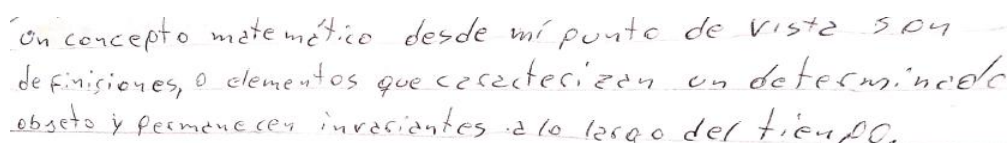 Un concepto matemático desde mí punto de vista son
definiciones, o elementos que caracterizan un determinado
objeto y permanecen invariantes a lo largo del tiempo.